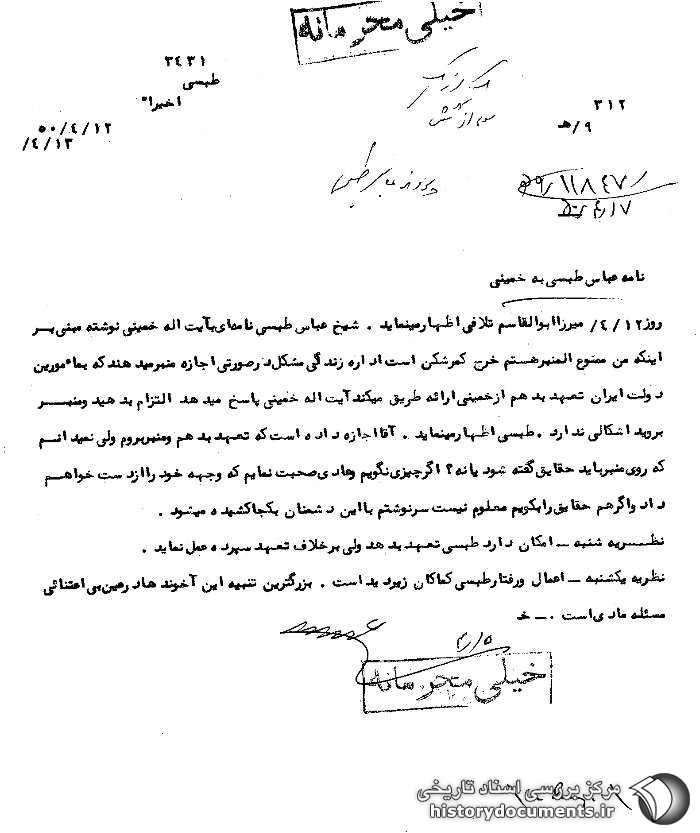 خیلی محرمانه
۳۴۳۱
طبسی
اخیراً
۵۰/۴/۱۲
/۴/۱۳
۳۱۲
۹/ﻫ
پرونده عباس طبسی
نامه عباس طبسی به خمینی
روز ۴/۱۲/ میرزا ابوالقاسم تلافی اظهار مینماید . شیخ عباس طبسی نامه‌ای بآیت اله خمینی نوشته مبنی بر
اینکه من ممنوع المنبر هستم خرج کمرشکن است اداره زندگی مشکل در صورتی اجازه منبر میدهند که بمأمورین
دولت ایران تعهد بدهم از خمینی ارائه طریق میکند آیت اله خمینی پاسخ میدهد التزام بدهید ومنبر
بروید اشکالی ندارد . طبسی اظهار مینماید . آقا اجازه داده است که تعهد بدهم ومنبر بروم ولی نمیدانم
که روی منبر باید حقایق گفته شود یا نه ؟ اگر چیزی نگویم وعادی صحبت نمایم که وجهه خود را از دست خواهم
داد واگر هم حقایق را بگویم معلوم نیست سرنوشتم با این دشمنان بکجا کشیده میشود .
نظریه شنبه ــ امکان دارد طبسی تعهد بدهد ولی برخلاف تعهد سپرده عمل نماید .
نظریه یکشنبه ــ اعمال ورفتار طبسی کماکان زیر دید است . بزرگترین تنبیه این آخوندها در عین بی اعتنائی
مسئله مادی است . ــ خ
خیلی محرمانه
مرکز بررسی اسناد تاریخی
historydocuments.ir